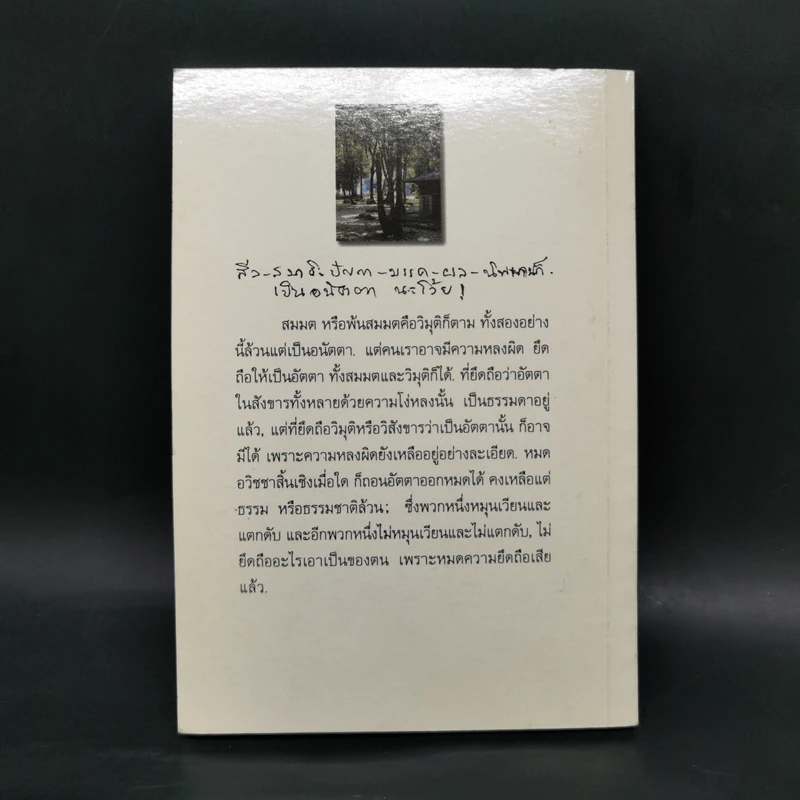 ศีล-สมาธิ-ปัญญา-มรรค-ผล-นิพพานก็
เป็นอนัตตา นะโว้ย!
สมมต หรือพ้นสมมตคือวิมุติก็ตาม ทั้งสองอย่าง
นี้ล้วนแต่เป็นอนัตตา. แต่คนเราอาจมีความหลงผิด ยึด
ถือให้เป็นอัตตา ทั้งสมมตและวิมุติก็ได้. ที่ยึดถือว่าอัตตา
ในสังขารทั้งหลายด้วยความโง่หลงนั้น เป็นธรรมดาอยู่
แล้ว, แต่ที่ยึดถือวิมุติหรือวิสังขารว่าเป็นอัตตานั้น ก็อาจ
มีได้ เพราะความหลงผิดยังเหลืออยู่อย่างละเอียด. หมด
อวิชชาสิ้นเชิงเมื่อใด ก็ถอนอัตตาออกหมดได้ คงเหลือแต่
ธรรม หรือธรรมชาติล้วน; ซึ่งพวกหนึ่งหมุนเวียนและ
แตกดับ และอีกพวกหนึ่งไม่หมุนเวียนและไม่แตกดับ, ไม่
ยึดถืออะไรเอาเป็นของตน เพราะหมดความยึดถือเสีย
แล้ว.